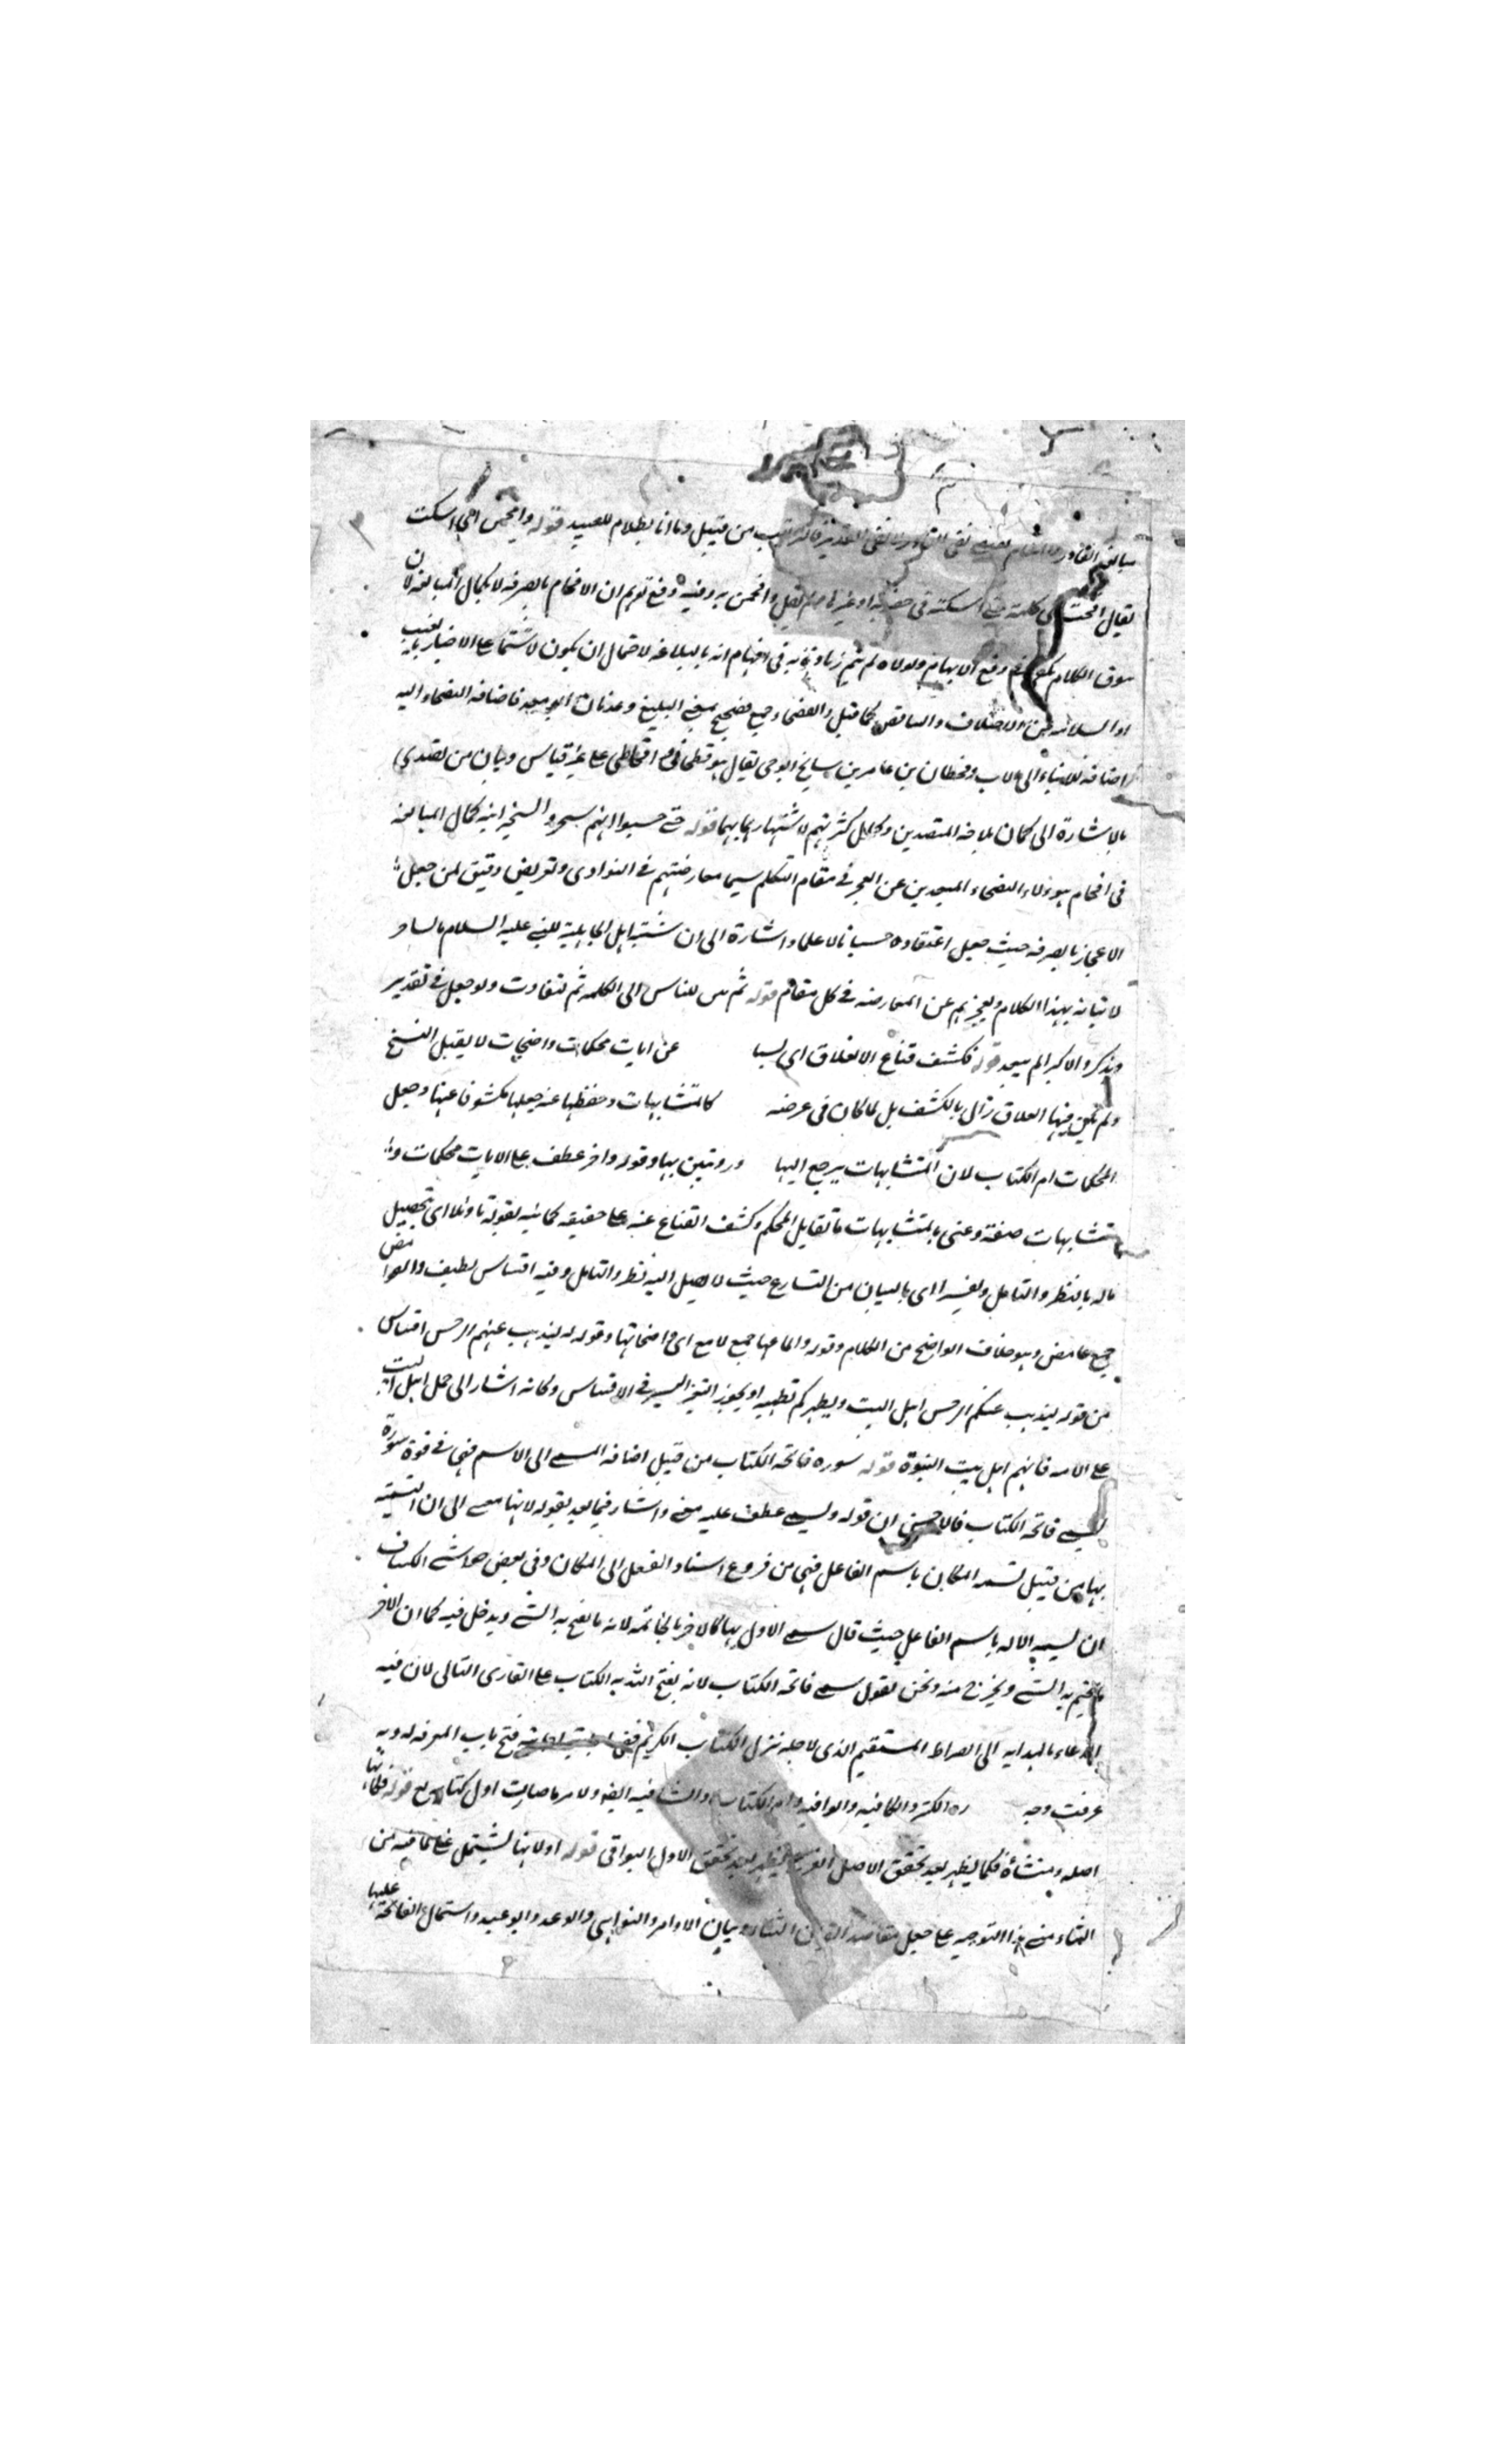 مبالغه القادر نفى القادر لا نفى القدير فالتركيب من قبيل وما انا بظلام للعبيد قوله وافحم اى اسكت
يقال افحمت اى كلمته حتى اسكته فى خصومة او غيرها ولم يقل وافحمن به وفيه دفع توهم ان الافحام بالصرفه لا بكمال المبالغه لان
سوق الكلام دفع الابهام ولولاه لم يتم زيادة به فى افهام انه بالبلاغه لاحتمال ان يكون لاشتماله على الاخبار بالغيب
او السلامه من الاختلاف والتناقض كما قيل والفصحاء جمع فصيح بمعنى البليغ وعدنان ابو معد فاضافه الفصحاء اليه
اضافه الابناء الى الاب وقحطان بن عامر بن شالخ ابو حى يقال هو قحطانى و اقحاطى على غير قياس وبيان من تصدى
بالاشارة الى كمال بلاغه المتصدين وكمال كثرتهم لاشتهار بهما قوله حتى حسبوا انهم سحروا تسخيرا فيه كمال المبالغه
فى افحام هؤلاء الفصحاء المبعدين عن العجز فى مقام التكلم سيما معارضتهم فى النوادى وتعريض دقيق لمن جعل
الاعجاز بالصرفه حيث جعل اعتقاده حسبانا لا علما واشارة الى ان نسبة اهل الجاهلية للنبى عليه السلام بالساحر
لاتيانه بهذا الكلام وتعجيزهم عن المعارضه فى كل مقام قوله ثم بين للناس الى الكلمه ثم لتفاوت ولو جعل فى تقدير
وتذكر والاكبر لم يبعد قوله فكشف قناع الانغلاق اى عن ايات محكمات واضحات لا يقبل النسخ
ولم يكن فيها انغلاق زال بالكشف بل لما كان فى عرضه كالمتشابهات وحفظها عنه جعلها مكشوفا عنها وجعل
المحكمات ام الكتاب لان المتشابهات يرجع اليها وقوله واخر عطف على الايات محكمات و
متشابهات صفة وعنى بالمتشابهات ما تقابل المحكم وكشف القناع عنه على حقيقه كما بينه بقوله تاويلا اى تحصيل
ماله بالنظر والتامل وتفسيرا اى بالبيان من الشارع حيث لا يصل اليه نظر والتامل وفيه اقتباس لطيف والغوامض
جمع غامض وهو خلاف الواضح من الكلام وقوله والماعها جمع لامع اى واضحاتها وقوله ليذهب عنهم الرجس اقتباس
من قوله ليذهب عنكم الرجس اهل البيت ويطهركم تطهيرا ويجوز التغير اليسير فى الاقتباس وكانه اشار الى حمل اهل البيت
على الامه فانهم اهل بيت النبوة قوله سوره فاتحه الكتاب من قبيل اضافه المسمى الى الاسم فهى فى قوة سورة
تسمى فاتحه الكتاب فالاحسن ان قوله وتسمى عطف عليه معنى واشار فيما بعد بقوله لانها الى ان التسميه
بها من قبيل تسميه المكان باسم الفاعل فهى من فروع اسناد الفعل الى المكان وفى بعض حواشى الكشاف
ان تسميه الاله باسم الفاعل حيث قال سمى الاول بها كالاخر بالخاتمه لانه ما يفتح به الشى ويدخل فيه كما ان الاخر
ما يختم به الشى ويخرج منه ونحن نقول سمى فاتحه الكتاب لانه يفتح الله به الكتاب على القارى التالى لان فيه
الدعاء بالهدايه الى الصراط المستقيم الذى لاجله نزل الكتاب الكريم فتح باب المعرفه له وبه
عرفت وجه الكنز والكافيه والوافيه وام الكتاب والشافيه ايضا ولامر ما صارت اول كتابه قوله فكانها
اصله ومنشاة فكما يظهر بعد تحقق الاصل الفرع يظهر بعد تحقق الاول البواقى قوله او لانها تشتمل على ما فيه من
الثناء مبنى هذا التوجيه على جعل مقاصد القرآن الثناء وبيان الاوامر والنواهى والوعد والوعيد واشتمال الفاتحة عليها